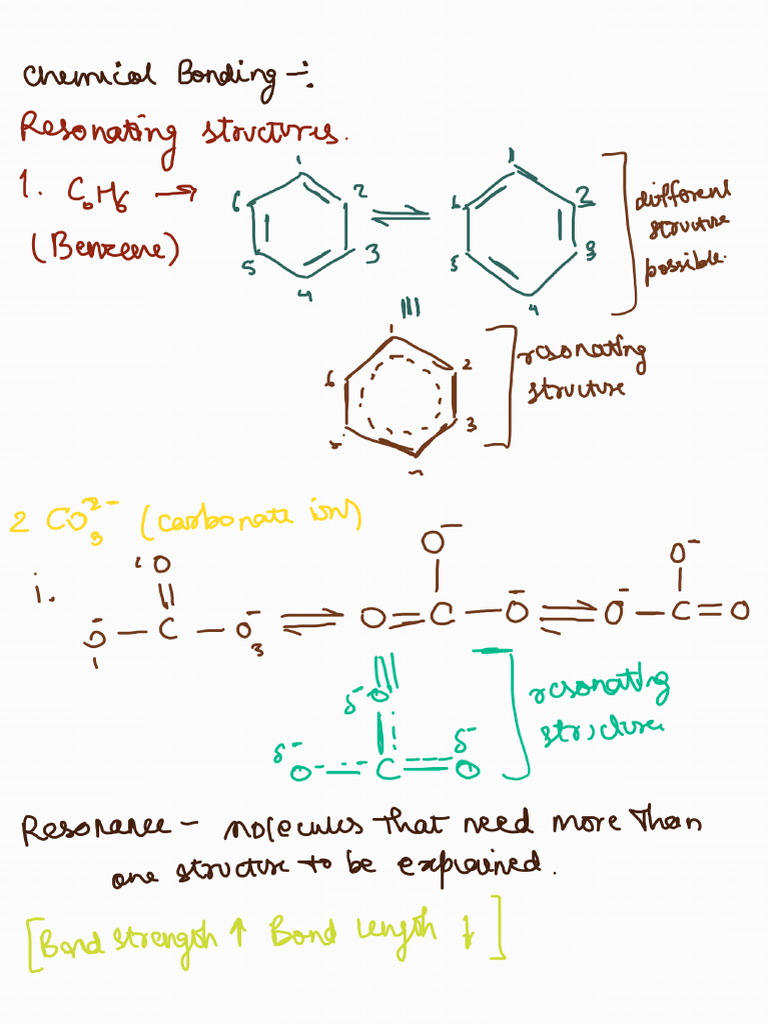 Chemical Bonding -:
Resonating structures.
1. C6H6 →
(Benzene)
1
6 2
5 3
4
⇌
1
6 2
5 3
4
different
structure
possible.
|||
1
6 2
3
resonating
structure
2 CO3 2- (carbonate ion)
i.
2 O
||
O- — C — O- ⇌ O = C — O- ⇌ O- — C = O
1 3
O-
|
O-
|
|||
δ- O
δ- O C O δ-
resonating
structure
Resonance - molecules that need more than
one structure to be explained.
[Bond strength ↑ Bond length ↓]